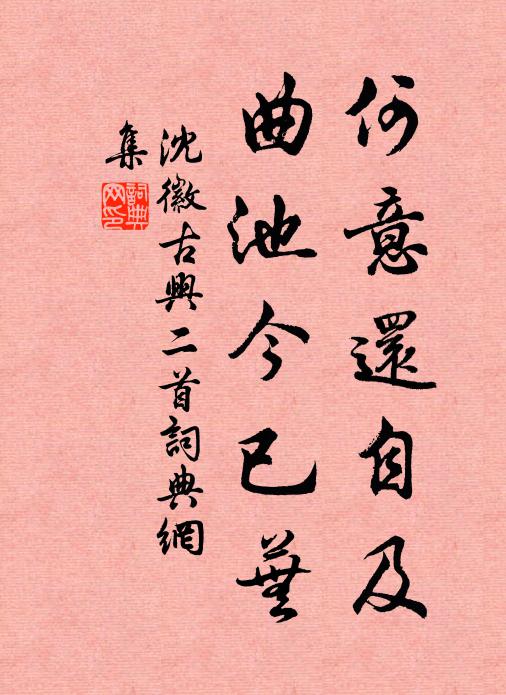 何意還自及
曲池今已蕪
沈徽古興二首詞典網
集
詞典
网印